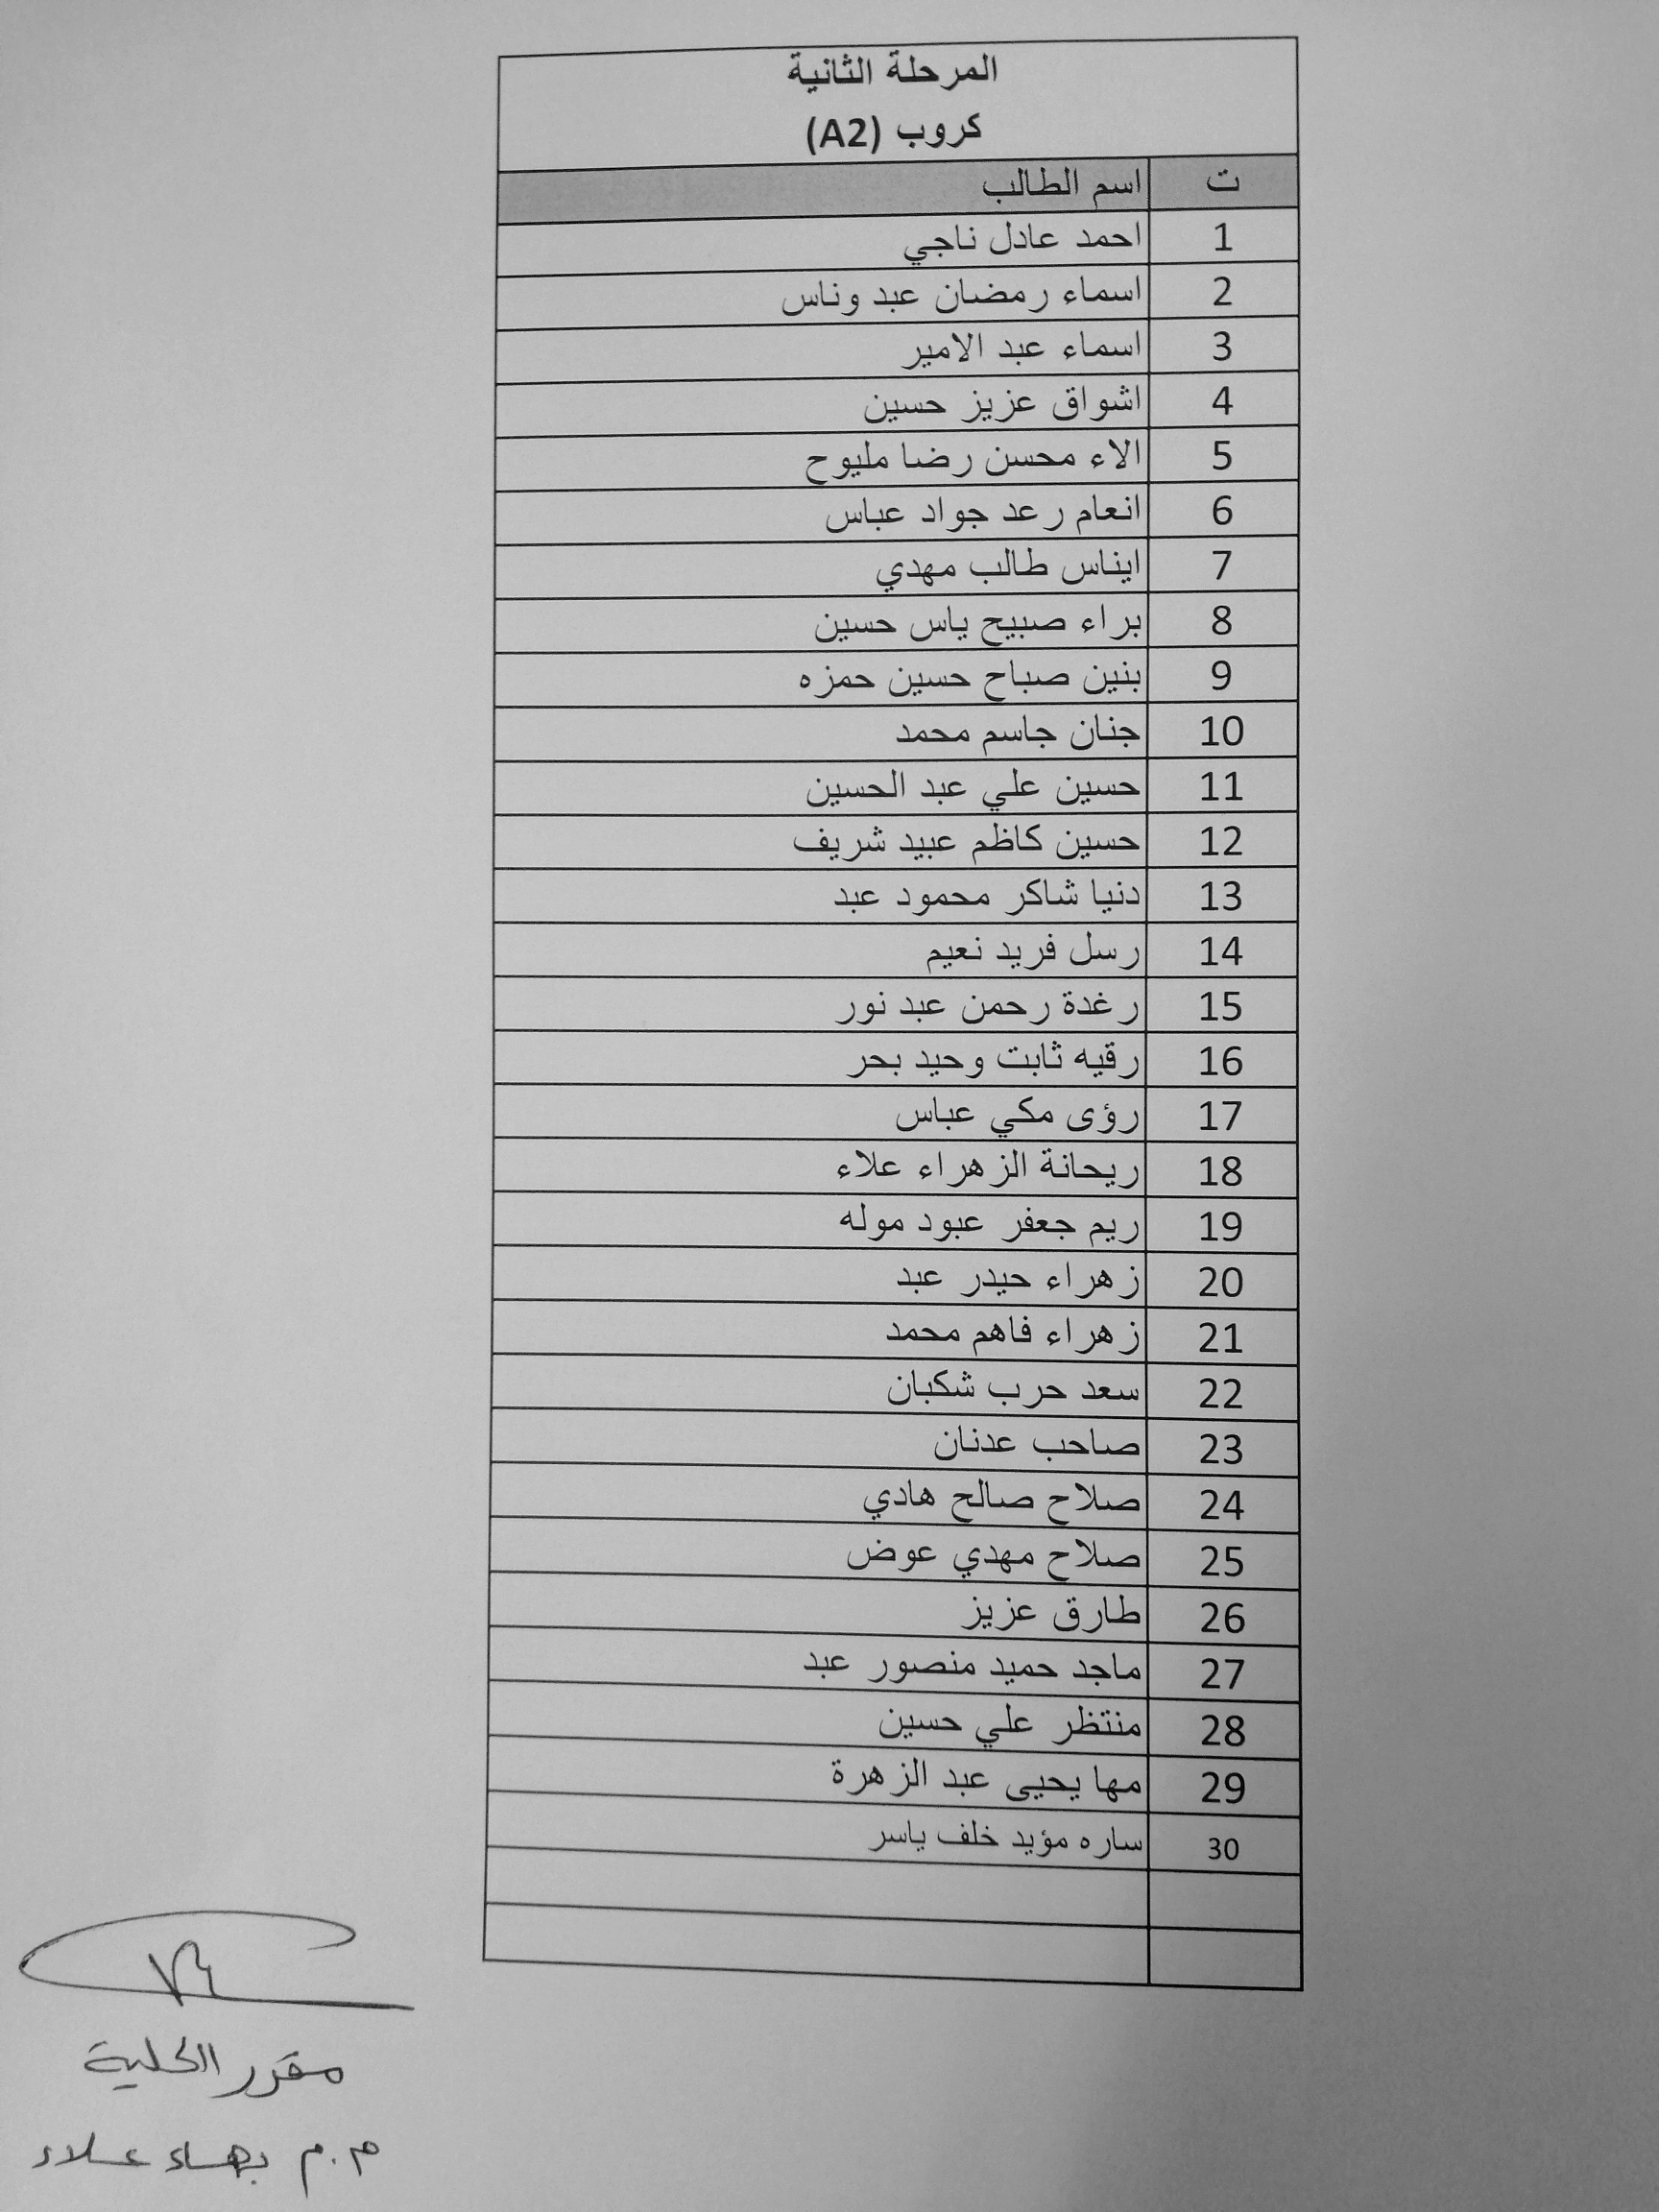 المرحلة الثانية
كروب (A2)
ت اسم الطالب
1 احمد عادل ناجي
2 اسماء رمضان عبد وناس
3 اسماء عبد الامير
4 اشواق عزيز حسين
5 الاء محسن رضا مليوح
6 انعام رعد جواد عباس
7 ايناس طالب مهدي
8 براء صبيح ياس حسين
9 بنين صباح حسين حمزه
10 جنان جاسم محمد
11 حسين علي عبد الحسين
12 حسين كاظم عبيد شريف
13 دنيا شاكر محمود عبد
14 رسل فريد نعيم
15 رغدة رحمن عبد نور
16 رقيه ثابت وحيد بحر
17 رؤى مكي عباس
18 ريحانة الزهراء علاء
19 ريم جعفر عبود موله
20 زهراء حيدر عبد
21 زهراء فاهم محمد
22 سعد حرب شكبان
23 صاحب عدنان
24 صلاح صالح هادي
25 صلاح مهدي عوض
26 طارق عزيز
27 ماجد حميد منصور عبد
28 منتظر علي حسين
29 مها يحيى عبد الزهرة
30 ساره مؤيد خلف ياسر
مقرر الكلية
م.م بهاء علاء